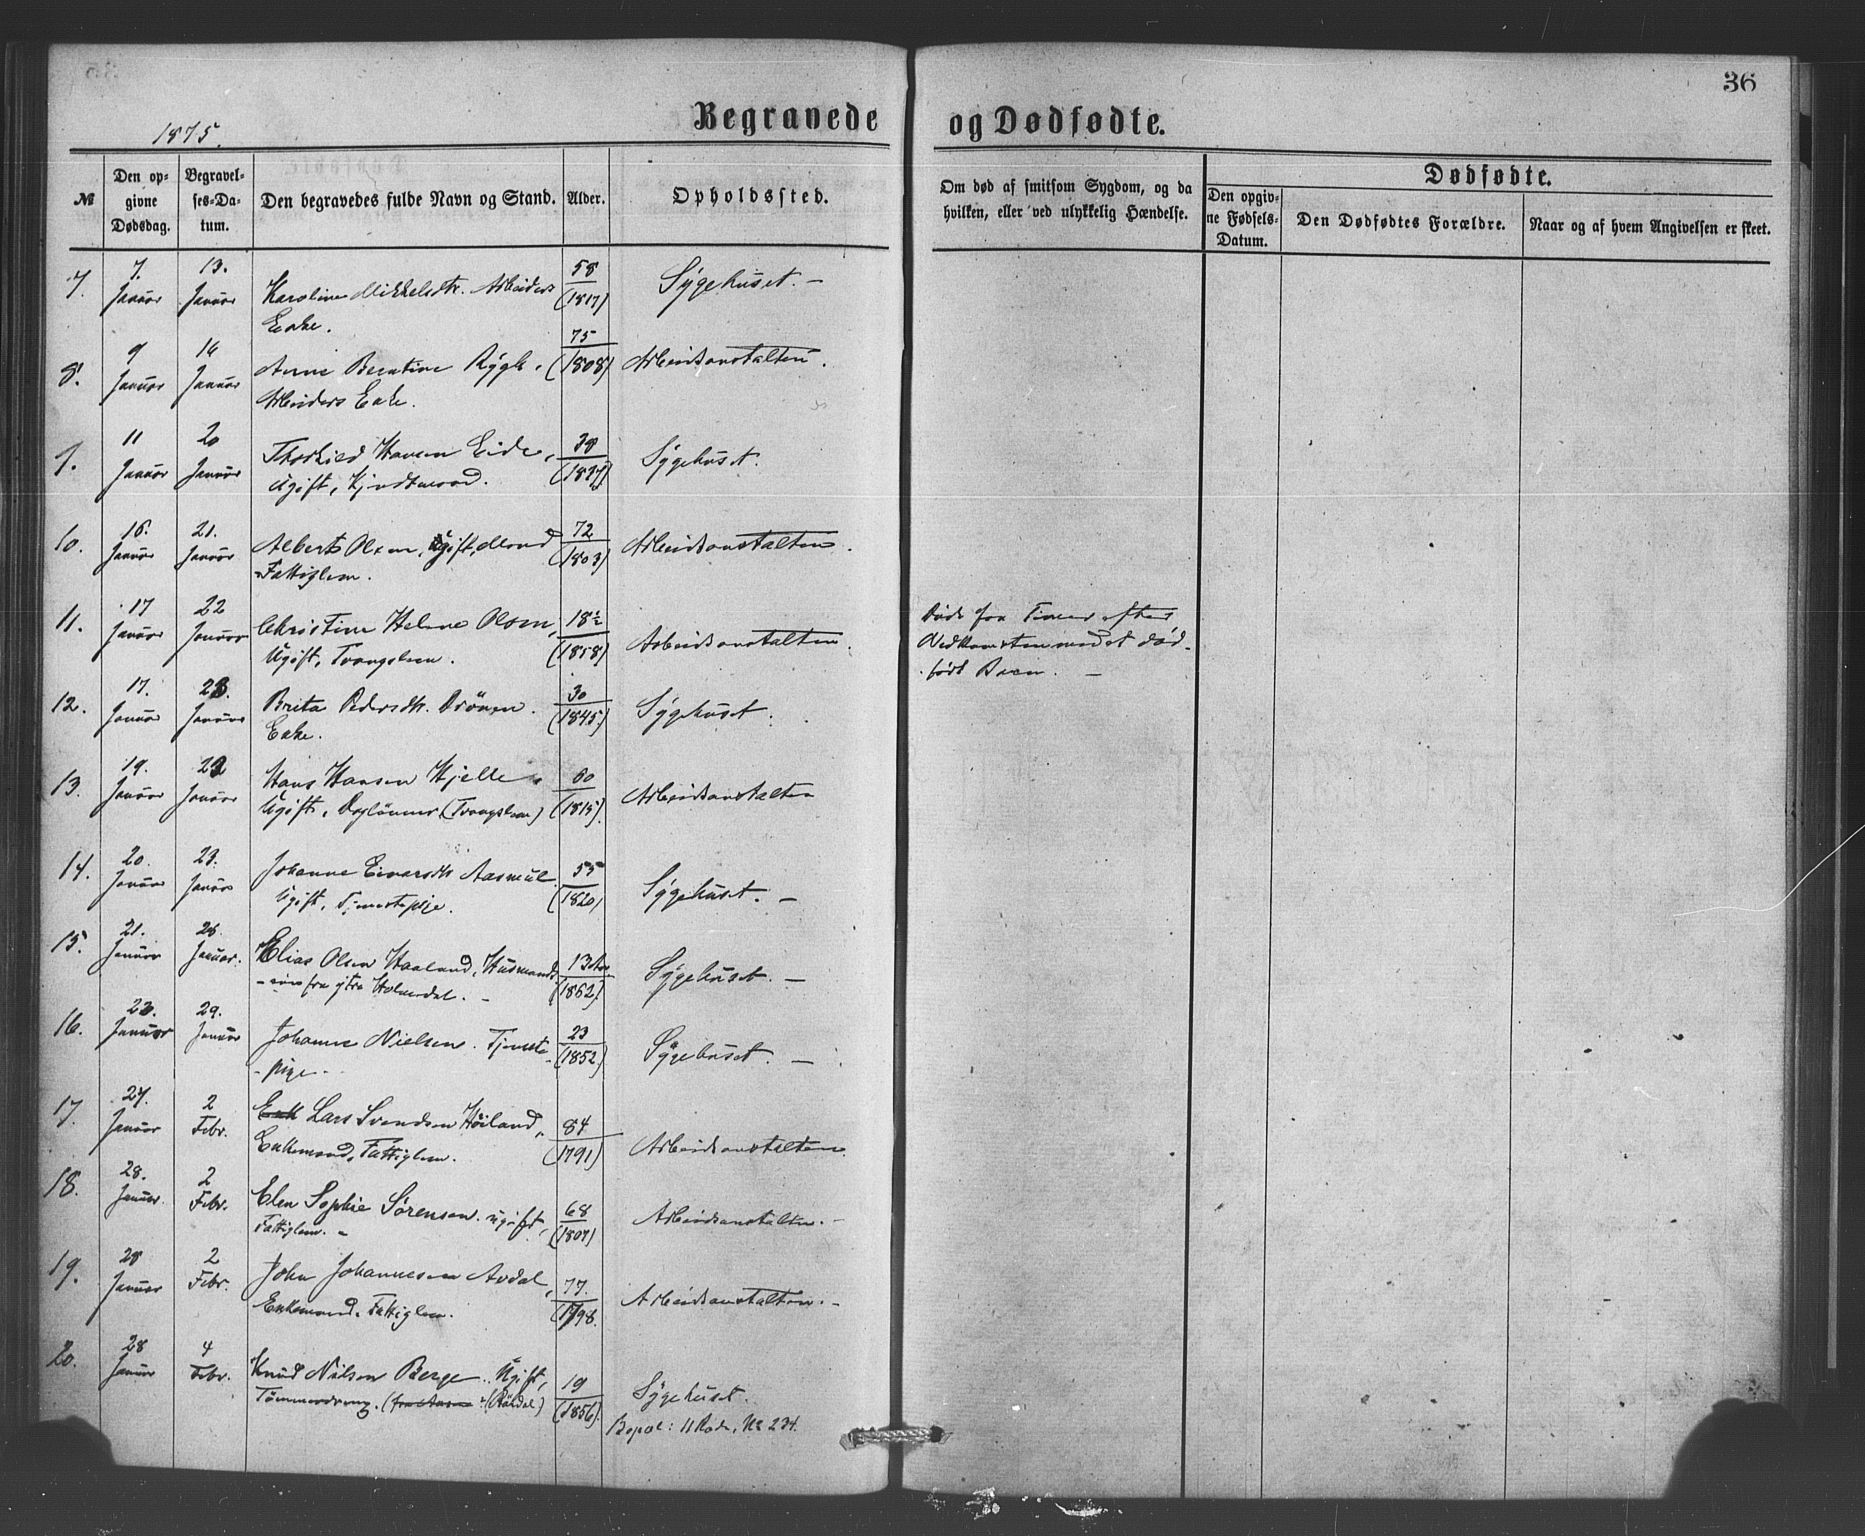 36
Begravede og Dødfødte.
1875.
№
Den opgivne Dødsdag.
Begravelses-Datum.
Den begravedes fulde Navn og Stand.
Alder.
Opholdssted.
Om død af smitsom Sygdom, og da hvilken, eller ved ulykkelig Hændelse.
Dødfødte.
Den opgivne Fødsels-Datum.
Den Dødfødtes Forældre.
Naar og af hvem Angivelsen er skeet.
7. 7. Januar 13. Januar Karoline Mikkelsdtr. Arbeiders 58 (1817) Sygehuset. –
Enke.
8. 9 Januar 16 Januar Anne Berntine 75 (1808) Arbeidsanstalten.
Arbeiders Enke.
9. 11 Januar 20 Januar Thorkild Hansen Eide, 38 (1837) Sygehuset.
Ugift,
10. 16. Januar 21. Januar Alberts Olsen, Ugift, Mand 72 (1803) Arbeidsanstalten.
Fattiglem.
11. 17 Januar 22 Januar Christine Helene Olsen, 18½ (1858) Arbeidsanstalten. Døde faa Timer efter
Ugift, Tvangslem. Nedkomsten med et død-
født Barn. –
12. 17. Januar 23. Januar Brita Pedersdtr. Drönen. 30 (1845) Sygehuset.
Enke.
13. 19. Januar 22 Januar Hans Hansen Hjelle. 60 (1815) Arbeidsanstalten
Ugift, Daglønner, (Tvangslem)
14. 20. Januar 23. Januar Johanne Einarsdtr. Aasmul. 55 (1820) Sygehuset. –
Ugift, Tjenestepige.
15. 21. Januar 26. Januar. Elias Olsen Haaland, Husmands 13 Aar (1862) Sygehuset. –
søn fra ytre Holmedal. –
16. 23. Januar 29. Januar Johanne Nielsen. Tjeneste- (1852) 23 Sygehuset. –
- pige. –
17. 27. Januar 2 Febr. Enk Lars Svendsen Høiland, 84 (1791) Arbeidsanstalten.
Enkemand, Fattiglem.
18. 28. Januar. 2 Febr. Elen Sophie Sørensen. ugift, 68 (1807) Arbeidsanstalten. –
Fattiglem. –
19. 28 Januar 2 Febr. John Johannesen Avdal, 77. (1798. Arbeidsanstalten. –
Enkemand. Fattiglem.
20. 28 Januar 4 Febr. Knud Nilsen Berge. Ugift, 19 (1856). Sygehuset.
Tømmerdreng. (Röldal) Bopæl: 11 Rode, № 234.